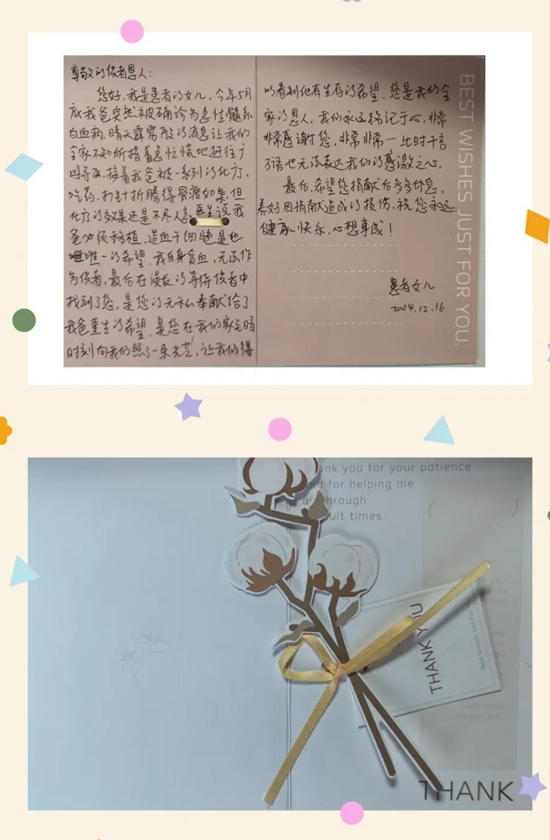 尊敬的供者恩人：
您好，我是患者的女儿，今年5月
底我爸突然被确诊为急性髓系
白血病，晴天霹雳般的消息让我们
全家不知所措着急忙慌地赶往广
接着我爸被一系列的化疗、
吃药、打针折腾得骨瘦如柴，但
化疗的效果还是不尽人意，医生说我
爸必须移植，造血干细胞是他
唯一的希望，我自身贫血，无法作
为供者，最后在漫长的等待供者中
找到了您，是您的无私奉献给了
我爸重生的希望，是您在我们家至暗
时刻向我们照了一束光芒，让我们得
以看到他有生存的希望，您是我们全
家的恩人，我们永远铭记于心，非常
非常感谢您，非常非常…此时千言
万语也无法表达我们的感激之心。
最后，希望您捐献后多多休息，
养好因捐献造成的损伤，祝您永远
健康、快乐，心想事成！
患者女儿
2024.12.16
BEST WISHES JUST FOR YOU.
nk you for your patience
for helping me
through
ult times.
THANK YOU
THANK